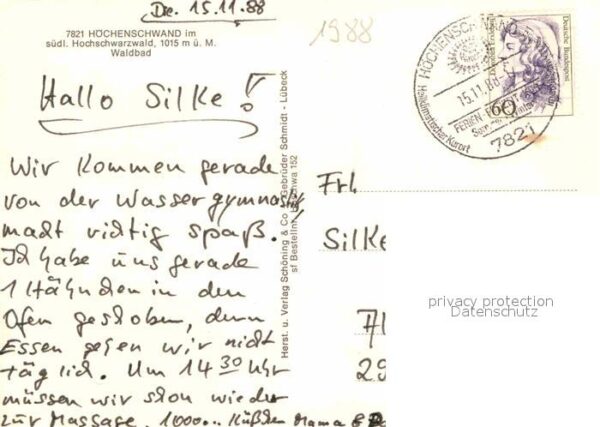 Die. 15.11.88
1988
7821 HÖCHENSCHWAND im
südl. Hochschwarzwald, 1015 m ü. M.
Waldbad
Hallo Silke!
Wir kommen gerade
von der Wassergymnastik
macht richtig spaß.
Ich habe uns gerade
1 Hähnchen in den
Ofen geschoben, denn
Essen gehen wir nicht
täglich. Um 14 30 Uhr
müssen wir schon wieder
zur Massage. 1000... Küßchen Mama &
Herst. u. Verlag Schöning & Co Gebrüder Schmidt - Lübeck
sf Bestellnr. 152
HÖCHENSCHWAND
15.11.88
FERIEN
Heilklimatischer Kurort
7821
Deutsche Bundespost
60
Frl
Silke
29
privacy protection
Datenschutz